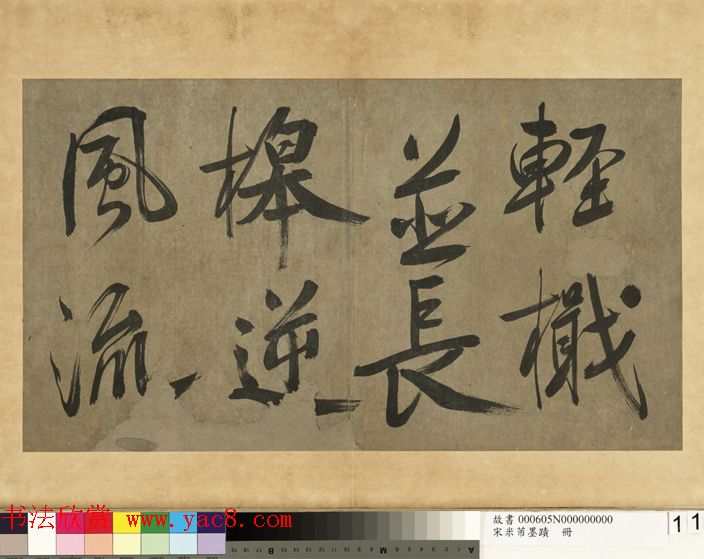 輕檝
並長
槔逆
風流
书法欣赏 www.yac8.com
故書 000605N000000000
宋米芾墨蹟 冊
11